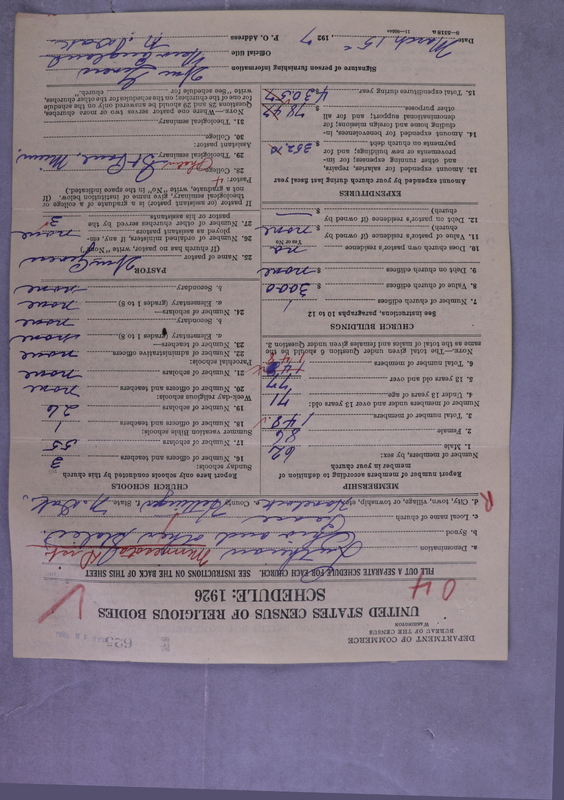 DEPARTMENT OF COMMERCE
BUREAU OF THE CENSUS
WASHINGTON
UNITED STATES CENSUS OF RELIGIOUS BODIES
SCHEDULE: 1926
04
FILL OUT A SEPARATE SCHEDULE FOR EACH CHURCH. SEE INSTRUCTIONS ON THE BACK OF THIS SHEET
a. Denomination Lutheran Minnesota Dist
b. Synod Ohio and other States
c. Local name of church Grace
d. City, town, village, or township, etc. Havelock County Hettinger State, N. Dak.
R
MEMBERSHIP
Report number of members according to definition of member in your church
Number of members, by sex:
1. Male 62
2. Female 86
3. Total number of members 148
Number of members under and over 13 years old:
4. Under 13 years of age 71
5. 13 years old and over 77
6. Total number of members 148
NOTE.—The total given under Question 6 should be the same as the total of males and females given under Question 3.
CHURCH BUILDINGS
See instructions, paragraphs 10 to 12
7. Number of church edifices 1
8. Value of church edifices $ 3000
9. Debt on church edifices $ none
10. Does church own pastor's residence no
Yes or No
11. Value of pastor's residence (if owned by church) $ none
12. Debt on pastor's residence (if owned by church) $
EXPENDITURES
Amount expended by your church during last fiscal year
13. Amount expended for salaries, repairs, and other running expenses; for improvements or new building; and for payments on church debt $ 352.10
14. Amount expended for benevolences, including home and foreign missions; for denominational support; and for all other purposes $ 78.47
15. Total expenditures during year $ 430.57
CHURCH SCHOOLS
Report here only schools conducted by this church
Sunday schools:
16. Number of officers and teachers 3
17. Number of scholars 55
Summer vacation Bible schools:
18. Number of officers and teachers 1
19. Number of scholars 26
Week-day religious schools:
20. Number of officers and teachers none
21. Number of scholars none
Parochial schools:
22. Number of administrative officers none
23. Number of teachers—
a. Elementary (grades 1 to 8) none
b. Secondary none
24. Number of scholars—
a. Elementary (grades 1 to 8) none
b. Secondary none
PASTOR
25. Name of pastor
(If church has no pastor, write "None")
26. Number of ordained ministers, if any, employed as assistant pastors none
27. Number of other churches served by the pastor or his assistants 3
If pastor (or assistant pastor) is a graduate of a college or theological seminary, give name of institution below. (If not a graduate, write "No" in the space indicated.)
Pastor:
28. College
29. Theological seminary St Paul, Minn,
Assistant pastor:
30. College
31. Theological seminary
NOTE.—Where one pastor serves two or more churches, Questions 28 and 29 should be answered only on the schedule for one of the churches; on the schedules for the other churches, write "See schedule for church."
Signature of person furnishing information
Official title
P. O. Address New England N. Dak.
Date March 15 , 1927